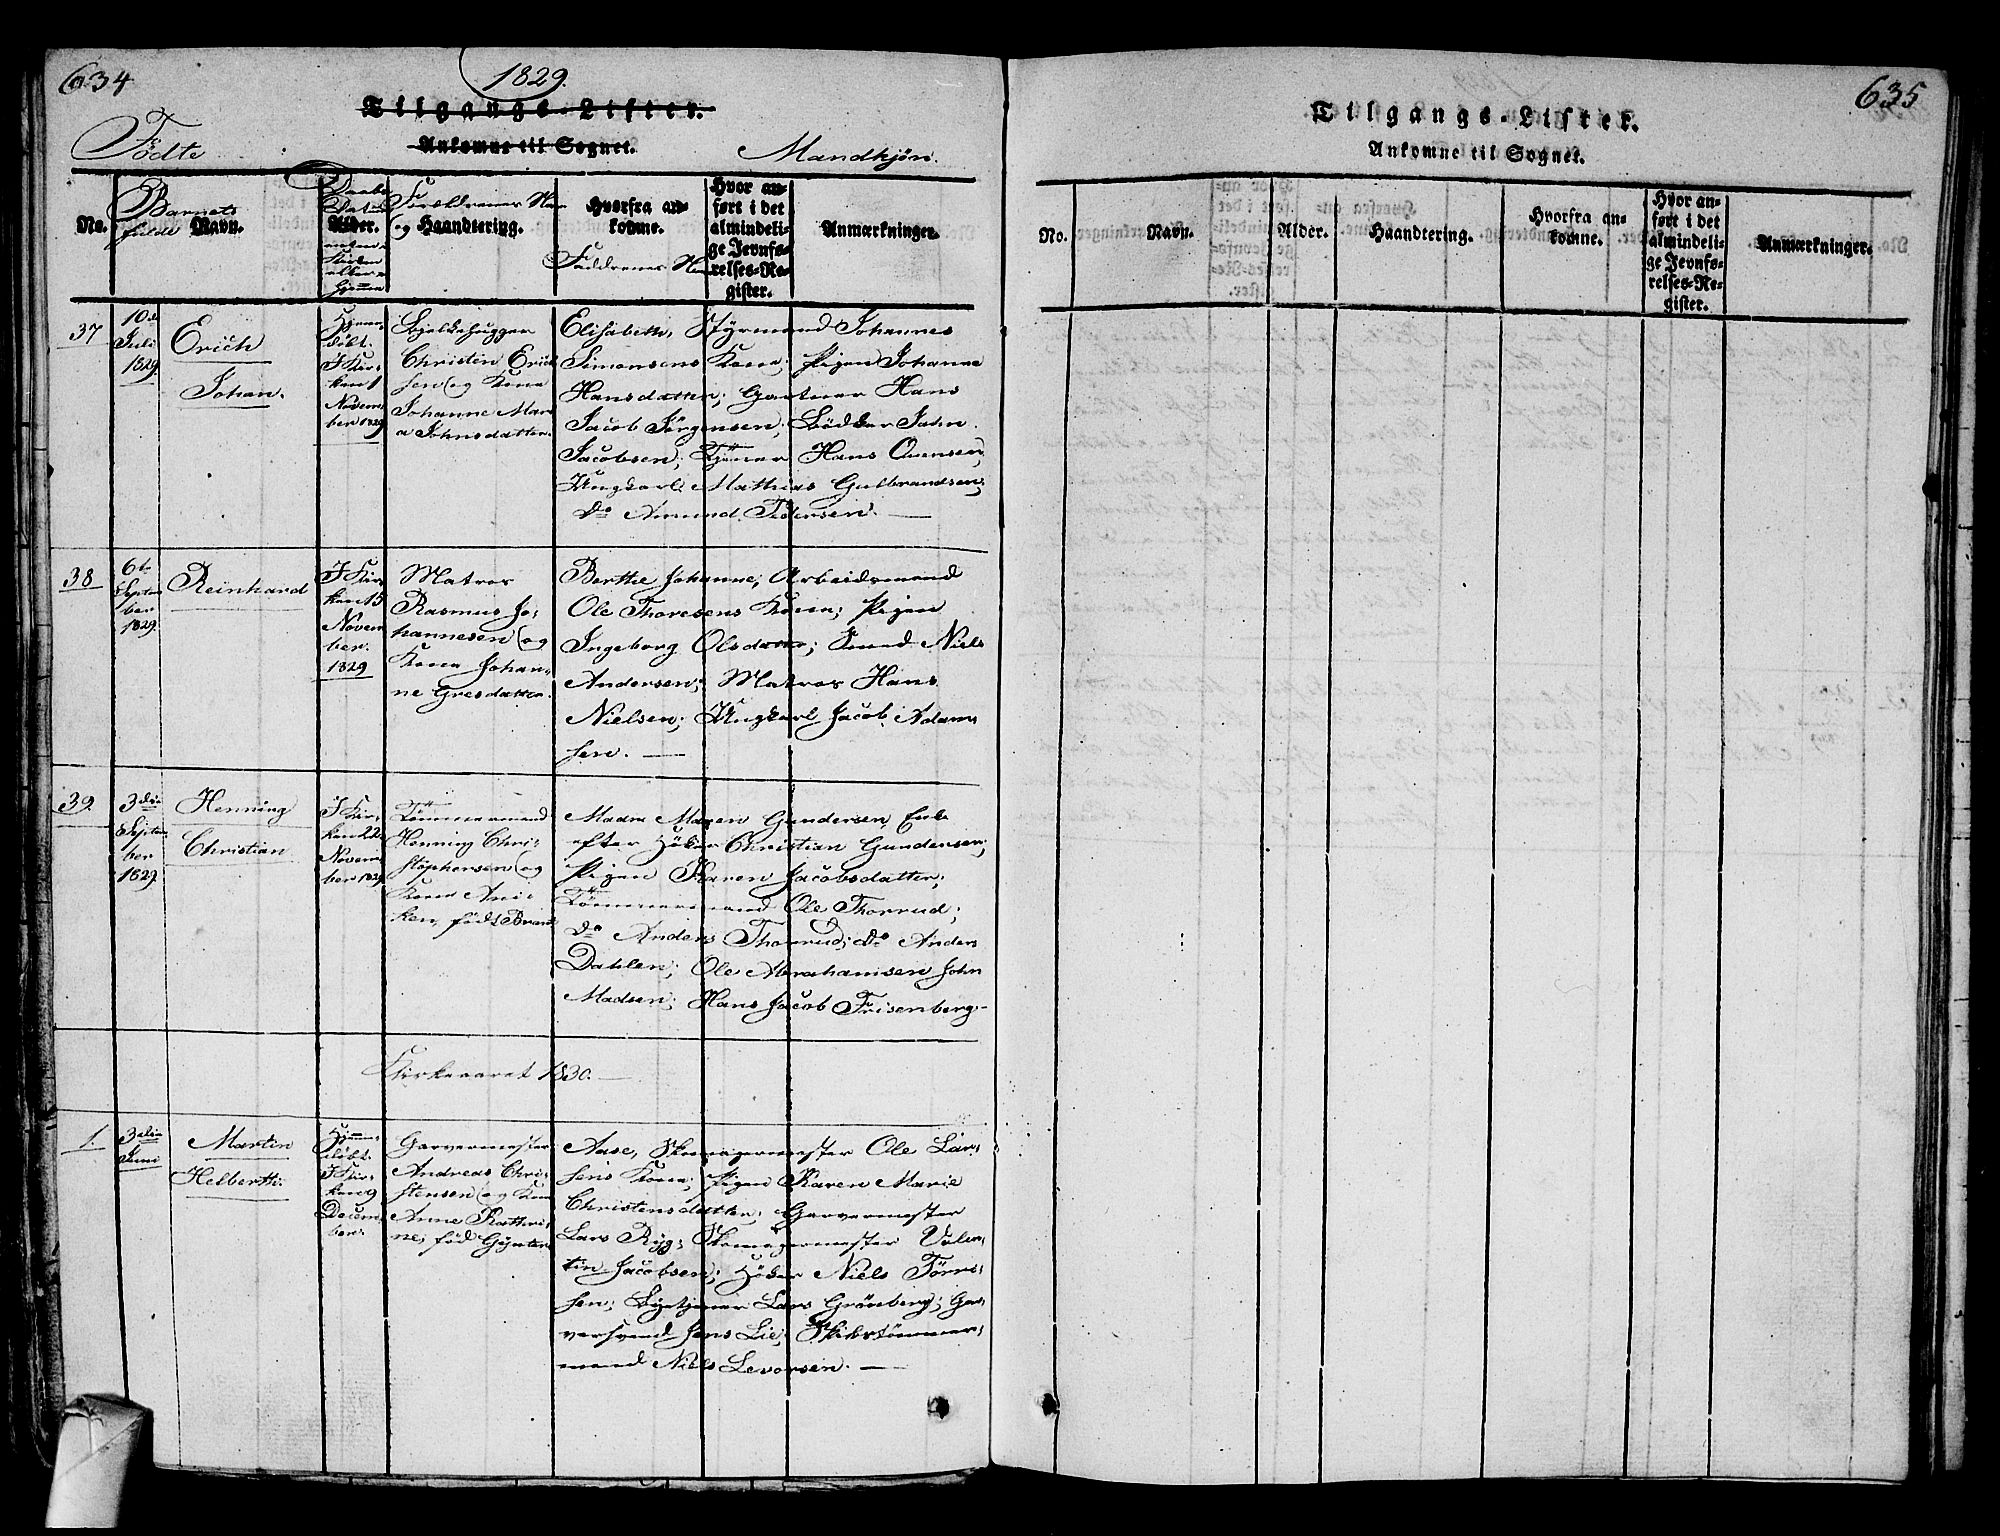 634
1829.
Tilgangs-Lister.
Ankomne til Sognet.
Födte
Mandkjön.
No.
Barnets fulde Navn.
Daabs Datum
Alder.
Forældrenes
og Haandtering.
Hvorfra an-
komne.
Faddrenes
Hvor an-
ført i det
almindeli-
ge Jevnfø-
relses-Re-
gister.
Anmærkninger.
37
10de
Juli
1829
Erich
Johan.
Hjem-
döbt.
I Kir-
ken 1
Novem-
ber 1829
Bjelkehugger
Christen Erich-
sen og Kone
Johanne Mari-
a Johnsdatter.
Elisabeth, Styrmand Johannes
Simonsens Kone; Pigen Johanne
Hansdatter; Gartner Hans
Jacob Jörgensen; Bödker John
Jacobsen; Tjener Hans Ouensen;
Ungkarl Mathias Gulbrandsen;
Do Amund Pedersen.
38
6te
Septem-
ber
1829.
Reinhard
I Kir-
ken 15
Novem-
ber.
1829
Matros
Rasmus Jo-
hannesen og
Kone Johan-
ne Gresdatter.
Berthe Johanne, Arbeidsmand
Ole Thoresens Kone; Pigen
Ingeborg Olsdatter; Niels
Andersen; Matros Hans
Nielsen; Ungkarl Jacob Adam-
sen.
39
3die
Septem-
ber
1829
Henning
Christian
I Kir-
ken 22
Novem-
ber 1829
Tömmermand
Henning Chri-
stophersen og
Kone Ani-
ken, födt Brand
Madm Maren Gundersen, Enke
efter Höker Christian Gundersen;
Pigen Karen Jacobsdatter;
Tömmermand Ole Thorrud;
Do Anders Thorrud; Do Anders
Dahlen; Ole Abrahamsen John
Madsen; Hans Jacob Frisenberg.
Kirkeaaret 1830.
1.
3die
Juni
Martin
Helberth.
Hjem-
döbt.
I Kir-
ken 9
Decem-
ber.
Garvermester
Andreas Chri-
stensen og Kone
Anne Kathri-
ne, föd Gynter
Aase, Skomagermester Ole Lar-
sens Kone; Pigen Karen Marie
Christensdatter; Garvermester
Lars Ryg; Skomagermester Valen-
tin Jacobsen; Höker Niels Törre-
sen; Bytjener Lars Grönberg; Gar-
versvend Jens Lie; Skibstömmer-
mand Niels Levorsen.
635
Tilgangs-Lister.
Ankomne til Sognet.
No.
Navn.
Alder.
Haandtering.
Hvorfra an-
komne.
Hvor an-
ført i det
almindeli-
ge Jevnfø-
relses-Re-
gister.
Anmærkninger.